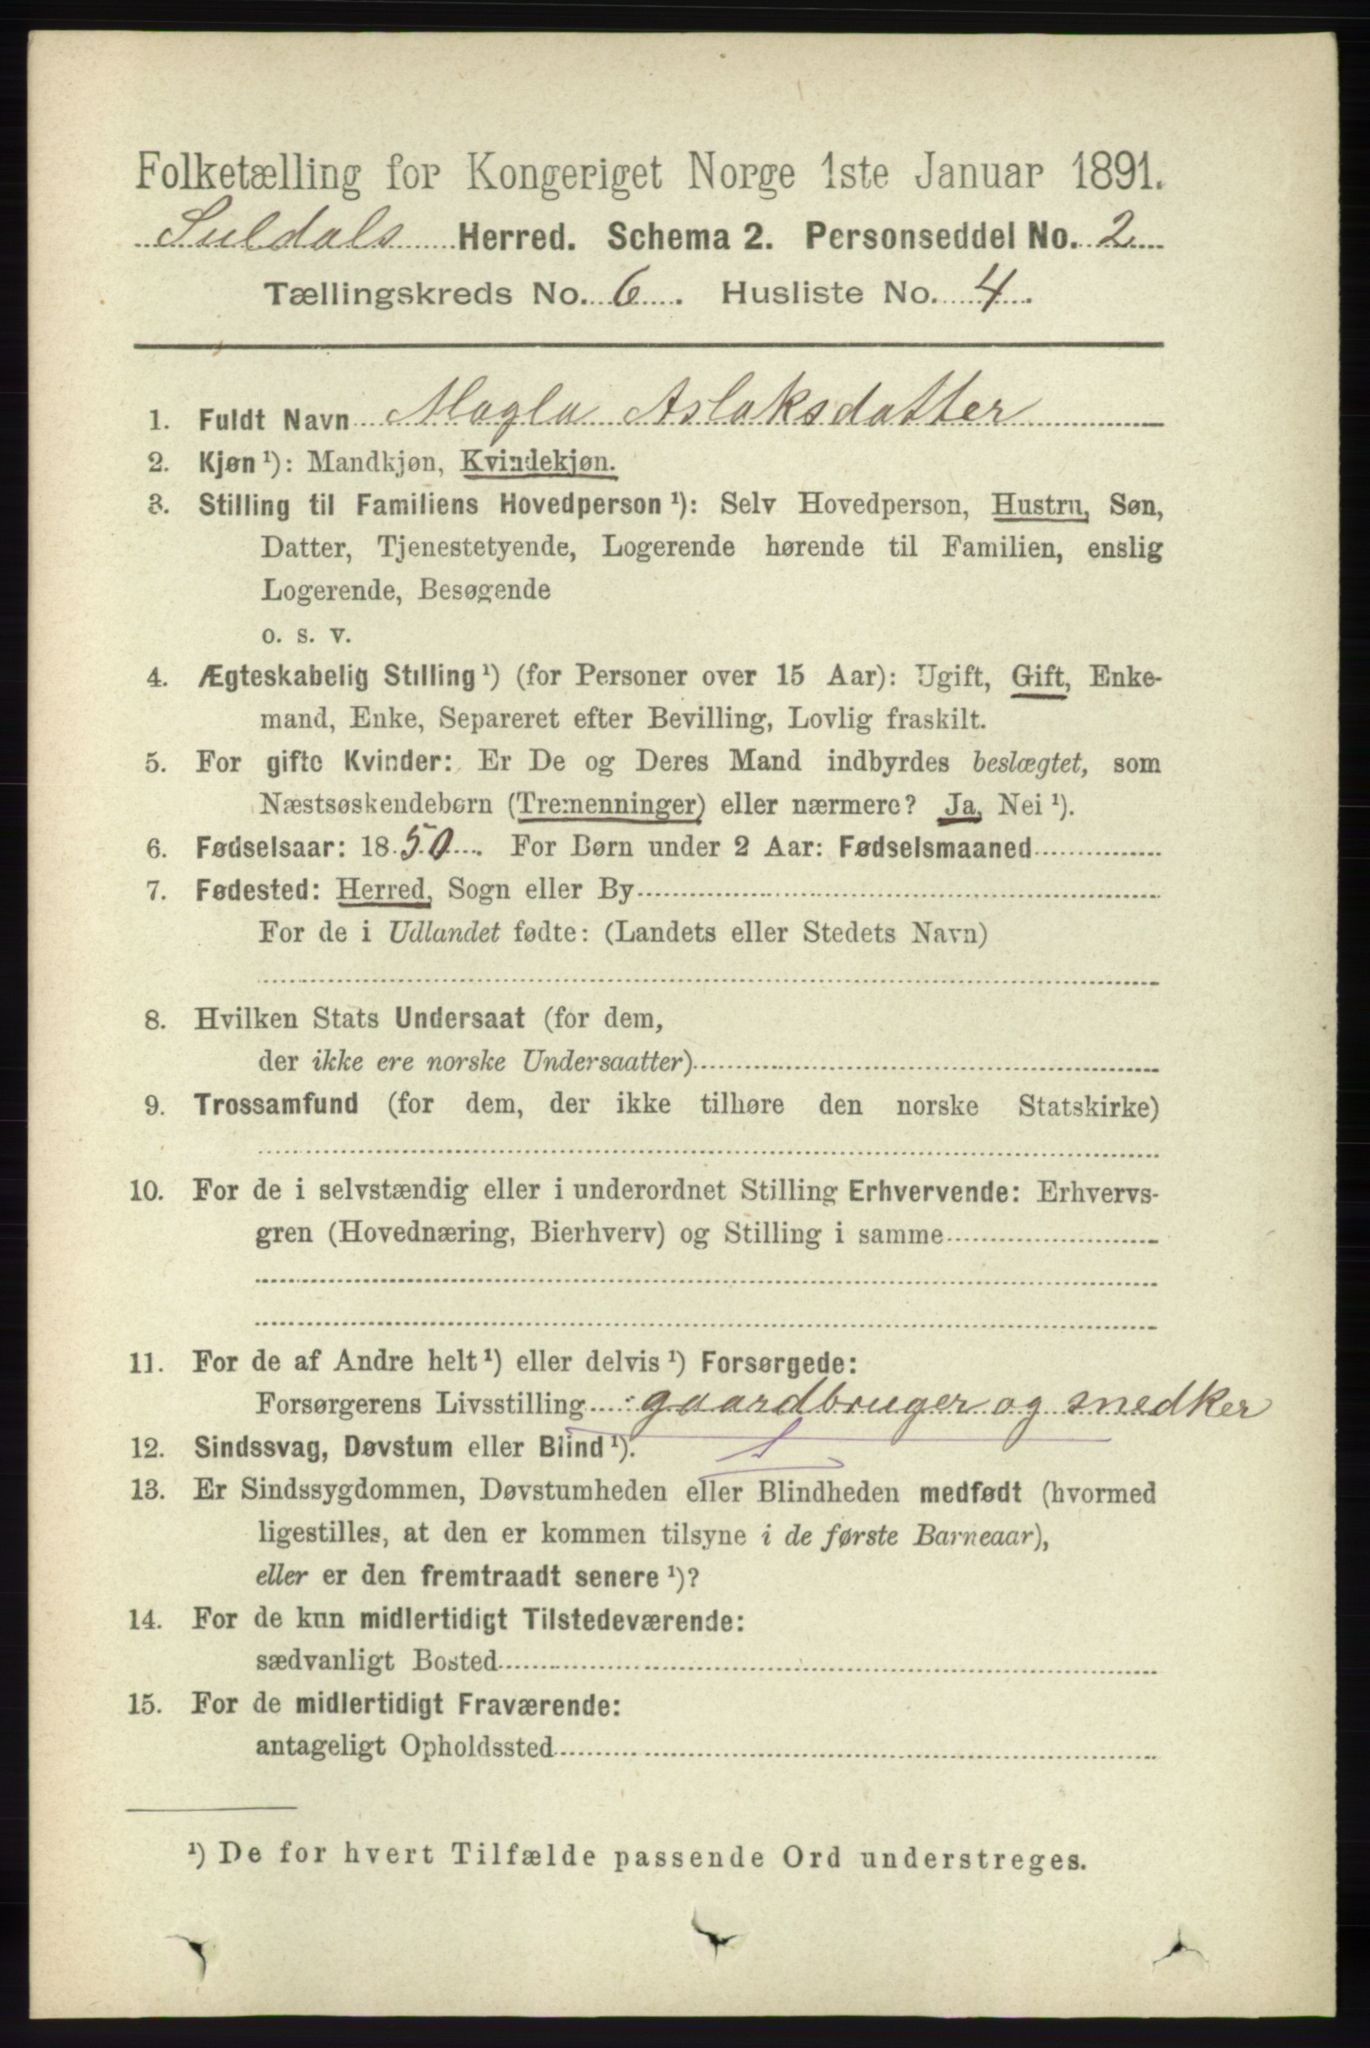 Folketælling for Kongeriget Norge 1ste Januar 1891.
Suldals Herred. Schema 2. Personseddel No. 2
Tællingskreds No. 6. Husliste No. 4.
1. Fuldt Navn Magla Aslaksdatter
2. Kjøn ¹): Mandkjøn, Kvindekjøn.
3. Stilling til Familiens Hovedperson ¹): Selv Hovedperson, Hustru, Søn,
Datter, Tjenestetyende, Logerende hørende til Familien, enslig
Logerende, Besøgende
o. s. v.
4. Ægteskabelig Stilling ¹) (for Personer over 15 Aar): Ugift, Gift, Enke-
mand, Enke, Separeret efter Bevilling, Lovlig fraskilt.
5. For gifte Kvinder: Er De og Deres Mand indbyrdes beslægtet, som
Næstsøskendebørn (Tremenninger) eller nærmere? Ja, Nei ¹).
6. Fødselsaar: 1850. For Børn under 2 Aar: Fødselsmaaned
7. Fødested: Herred, Sogn eller By
For de i Udlandet fødte: (Landets eller Stedets Navn)
8. Hvilken Stats Undersaat (for dem,
der ikke ere norske Undersaatter)
9. Trossamfund (for dem, der ikke tilhøre den norske Statskirke)
10. For de i selvstændig eller i underordnet Stilling Erhvervende: Erhvervs-
gren (Hovednæring, Bierhverv) og Stilling i samme
11. For de af Andre helt ¹) eller delvis ¹) Forsørgede:
Forsørgerens Livsstilling gaardbruger og snedker
12. Sindssvag, Døvstum eller Blind ¹).
13. Er Sindssygdommen, Døvstumheden eller Blindheden medfødt (hvormed
ligestilles, at den er kommen tilsyne i de første Barneaar),
eller er den fremtraadt senere ¹)?
14. For de kun midlertidigt Tilstedeværende:
sædvanligt Bosted
15. For de midlertidigt Fraværende:
antageligt Opholdssted
¹) De for hvert Tilfælde passende Ord understreges.